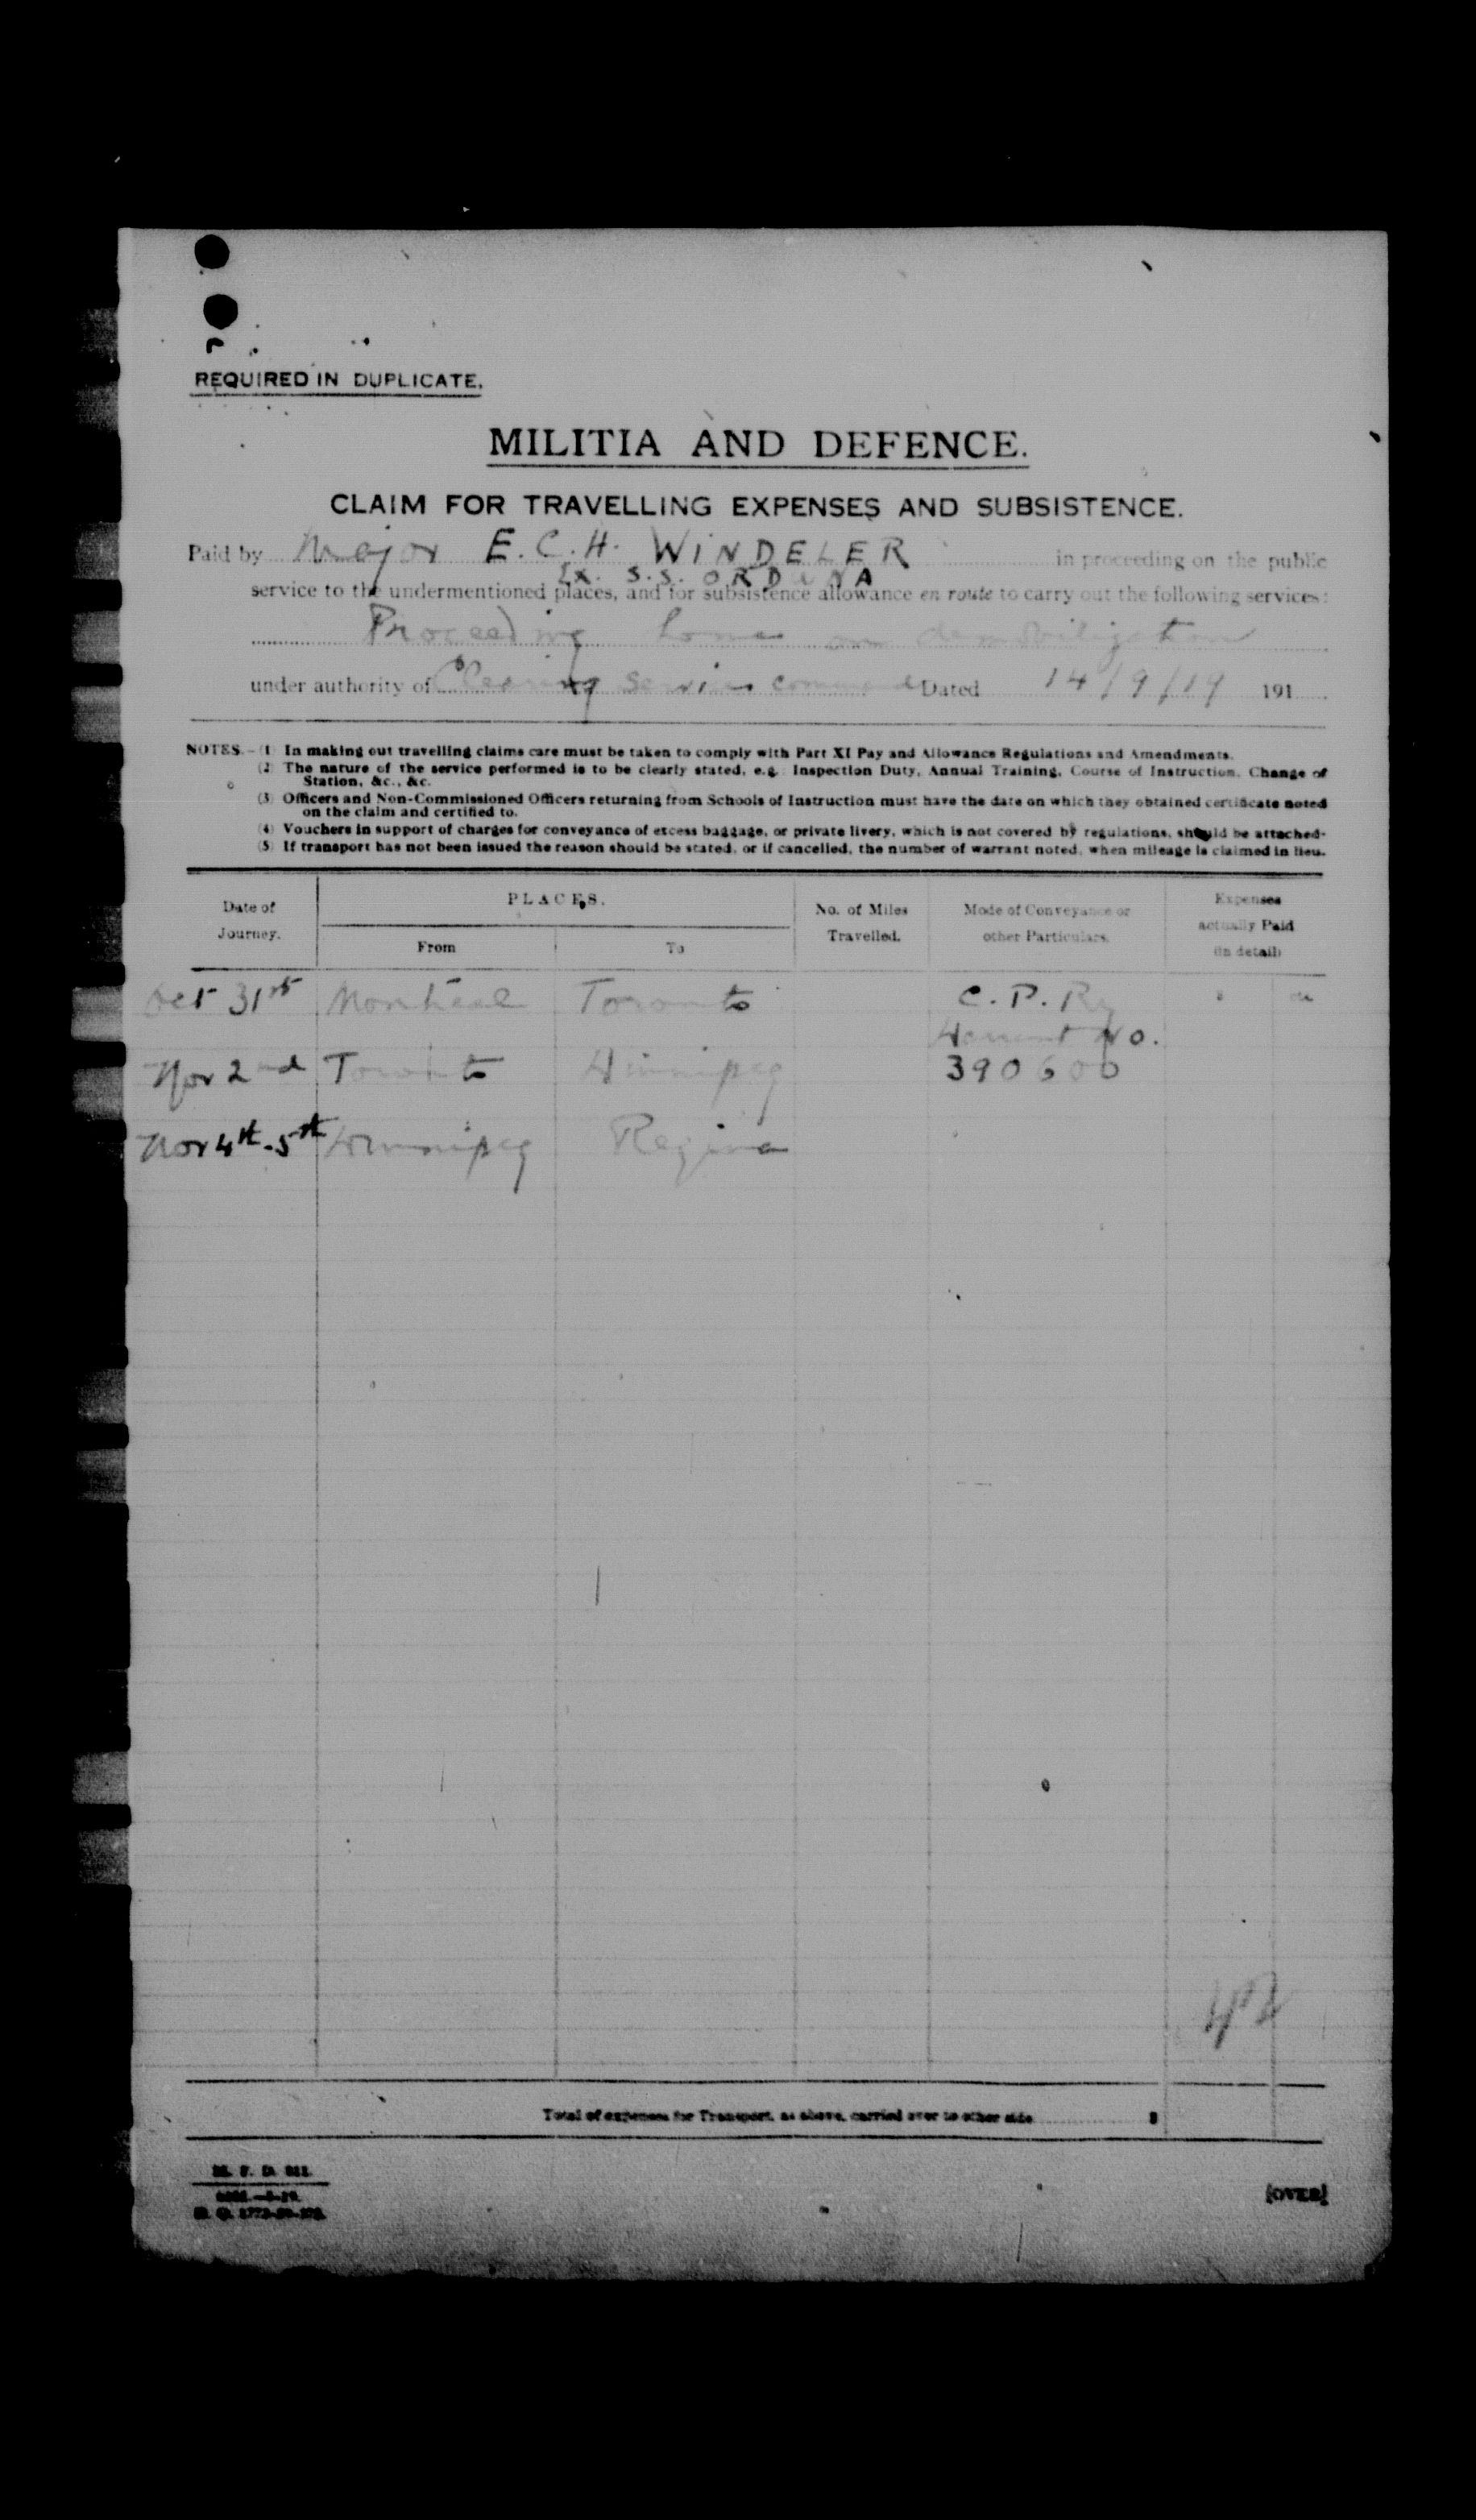 REQUIRED IN DUPLICATE.
MILITIA AND DEFENCE.
CLAIM FOR TRAVELLING EXPENSES AND SUBSISTENCE.
Paid by Major E.C.H. WINDELER in proceeding on the public
Ex. S.S. ORDUNA
service to the undermentioned places, and for subsistence allowance en route to carry out the following services:
Proceeding home on demobilization
under authority of Clearing Services command Dated 14/9/19 191
NOTES.—(1) In making out travelling claims care must be taken to comply with Part XI Pay and Allowance Regulations and Amendments.
(2) The nature of the service performed is to be clearly stated, e.g. Inspection Duty, Annual Training, Course of Instruction, Change of
Station, &c., &c.
(3) Officers and Non-Commissioned Officers returning from Schools of Instruction must have the date on which they obtained certificate noted
on the claim and certified to.
(4) Vouchers in support of charges for conveyance of excess baggage, or private livery, which is not covered by regulations, should be attached.
(5) If transport has not been issued the reason should be stated, or if cancelled, the number of warrant noted, when mileage is claimed in lieu.
Date of Journey. PLACES. No. of Miles Travelled. Mode of Conveyance or other Particulars. Expenses actually Paid (in detail)
From To
Oct 31st Montreal Toronto C.P. Ry
Warrant No.
Nov 2nd Toronto Winnipeg 390600
Nov 4th-5th Winnipeg Regina
Total of expenses for Transport, as above, carried over to other side $
(OVER)